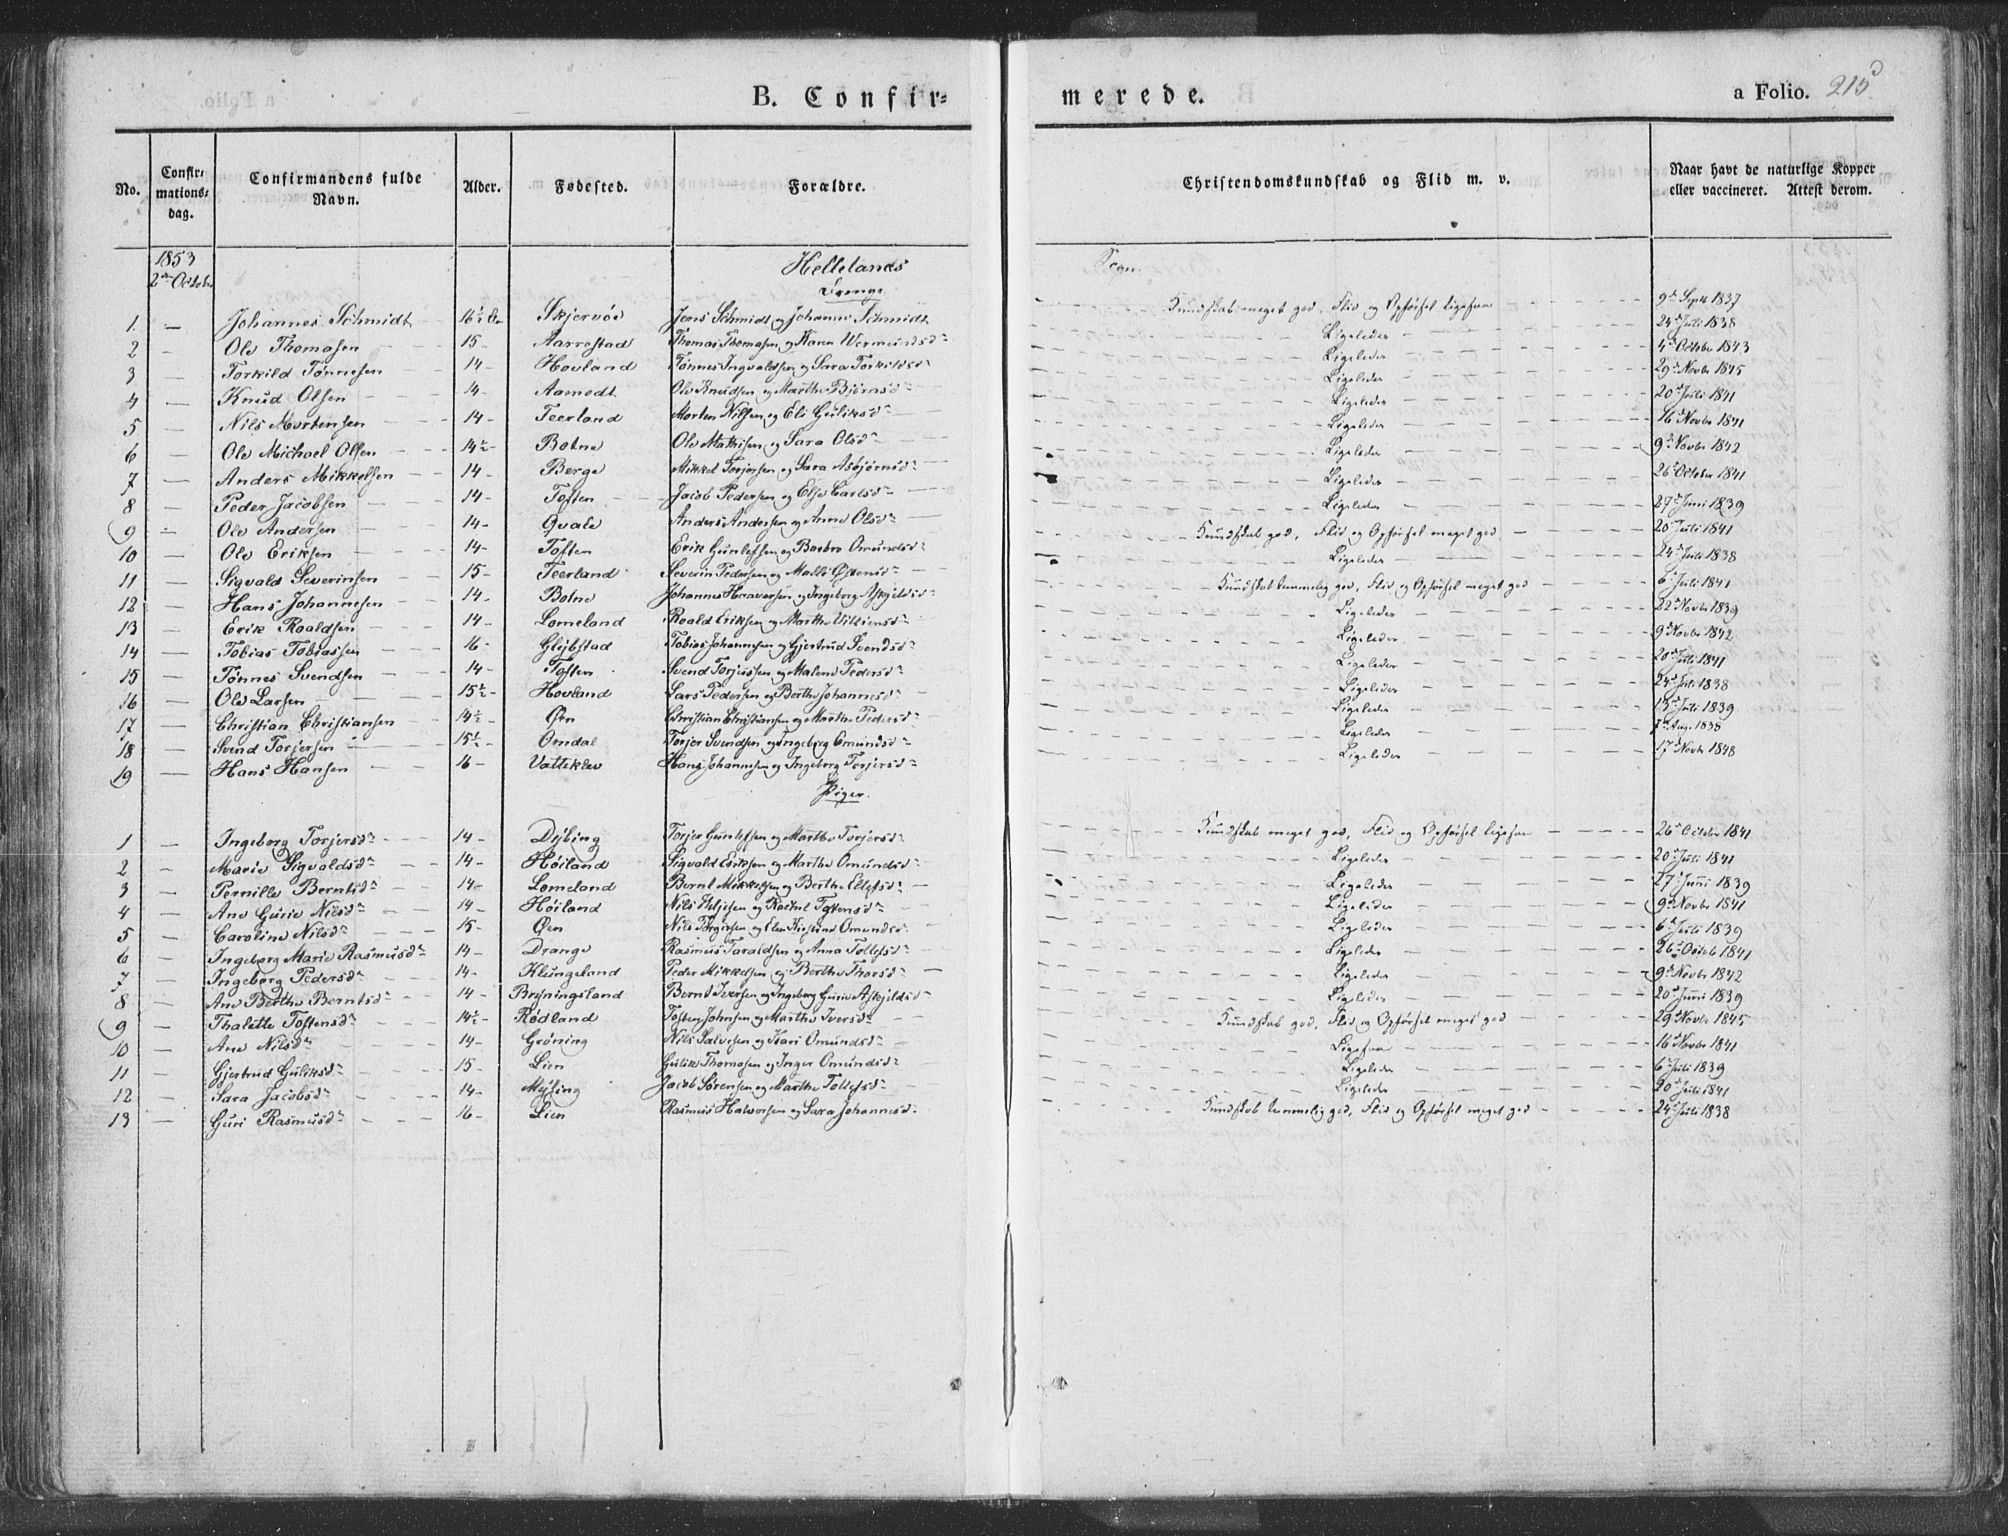 B. Confir=
merede.
a Folio. 215
No. | Confir=mations=dag. | Confirmandens fulde Navn. | Alder. | Fødested. | Forældre. | Christendomskundskab og Flid m. v. | Naar havt de naturlige Kopper eller vaccineret. Attest derom.
1853
2den October
Hellelands Sogn.
Drenge
1 — Johannes Schmidt 16½ Aar Skjervøe Jens Schmidt og Johanne Schmidt Kundskab meget god, Flid og Opførsel ligesaa 9d Septr 1837
2 — Ole Thomasen 15 - Aarrestad Thomas Thomasen og Karen Wermundsdr Ligeledes 24d Juli 1838
3 — Torkild Tønnesen 14 - Hovland Tønnes Ingvaldsen og Sara Torkildsd Ligeledes 4d October 1843
4 — Knud Olsen 14 - Aamodt Ole Knudsen og Marthe Bjørnsdr Ligeledes 29d Novbr 1845
5 — Nils Mortensen 14 - Teerland Morten Nilsen og Eli Guliksdr Ligeledes 20d Juli 1841
6 — Ole Michael Olsen 14½ - Botne Ole Mathisen og Sara Olsdr Ligeledes 16d Novbr 1841
7 — Anders Mikkelsen 14 - Berge Mikkel Torjersen og Sara Asbjørnsdr Ligeledes 9d Novbr 1842
8 — Peder Jacobsen 14 - Toften Jacob Pedersen og Else Carlsdr Ligeledes 26d October 1841
9 — Ole Andersen 14 - Qvale Anders Andersen og Anne Olsdr Ligeledes 27d Juni 1839
10 — Ole Eriksen 14 - Toften Erik Gunlefsen og Barbro Omundsdr Kundskab god, Flid og Opførsel meget god 20d Juli 1841
11 — Sigvald Severinsen 15 - Teerland Severin Pedersen og Malle Østensdr Ligeledes 24d Juli 1838
12 — Hans Johannesen 14 - Botne Johannes Haaversen og Ingeborg Askjeldsdr Kundskab temmelig god, Flid og Opførsel meget god 6d Juli 1841
13 — Erik Roaldsen 14 - Lomeland Roald Eriksen og Marthe Villiensdr Ligeledes 22d Novbr 1839
14 — Tobias Tobiassen 16 - Gleibstad Tobias Johannesen og Gjertrud Svendsdr Ligeledes 9d Novbr 1842
15 — Tønnes Svendsen 14 - Toften Svend Torjussen og Malene Pedersdr Ligeledes 20d Juli 1841
16 — Ole Larsen 15½ - Hovland Lars Pedersen og Berthe Johannesdr Ligeledes 24d Juli 1838
17 — Christian Christiansen 14½ - Øen Christian Christiansen og Marthe Pedersdr Ligeledes 15d Juli 1839
18 — Svend Torjersen 15½ - Omdal Torjer Svendsen og Ingeborg Omundsdr Ligeledes 7d Aug. 1838
19 — Hans Hansen 16 - Vatteklev Hans Johannesen og Ingeborg Torjersdr Ligeledes 17d Novbr 1848
Piger.
1 — Ingeborg Torjersdr 14 - Dybing Torjer Gunlefsen og Marthe Torjersdr Kundskab meget god, Flid og Opførsel ligesaa 26d October 1841
2 — Marie Sigvaldsdr 14 - Høiland Sigvald Eriksen og Marthe Omundsdr Ligeledes 20d Juli 1841
3 — Pernille Berntsdr 14 - Lomeland Bernt Mikkelsen og Berthe Ellefsdr Ligeledes 27d Juni 1839
4 — Ane Gurie Nilsdr 14 - Høiland Nils Heljesen og Rachel Tostensdr Ligeledes 9d Novbr 1841
5 — Caroline Nilsdr 15 - Øen Nils Torgersen og Elen Kirstine Omundsd Ligeledes 6d Juli 1839
6 — Ingeborg Marie Rasmusdr 14 - Drange Rasmus Taraldsen og Anna Tollefsdr Ligeledes 26d Octob 1841
7 — Ingeborg Pedersdr 14 - Klungeland Peder Mikkelsen og Berthe Thorsdr Ligeledes 9d Novbr 1842
8 — Ane Berthe Berntsdr 14 - Bryningsland Bernt Iversen og Ingeborg Gurie Askjeldsdr Ligeledes 20d Juni 1839
9 — Thalette Tostensdr 14½ - Rødland Tosten Johnsen og Marthe Iversdr Kundskab god, Flid og Opførsel meget god 29d Novbr 1845
10 — Ane Nilsdr 14 - Grøning Nils Salvesen og Kari Omundsdr Ligesaa 16d Novbr 1841
11 — Gjertrud Guliksdr 15 - Lien Gulik Thomasen og Inger Omundsdr Ligeledes 6d Juli 1839
12 — Sara Jacobsdr 14 - Mysing Jacob Sørensen og Marthe Tollefsdr Ligeledes 20d Juli 1841
13 — Guri Rasmusdr 16 - Lien Rasmus Halvorsen og Sara Johannesd Kundskab temmelig god, Flid og Opførsel meget god 24d Juli 1838